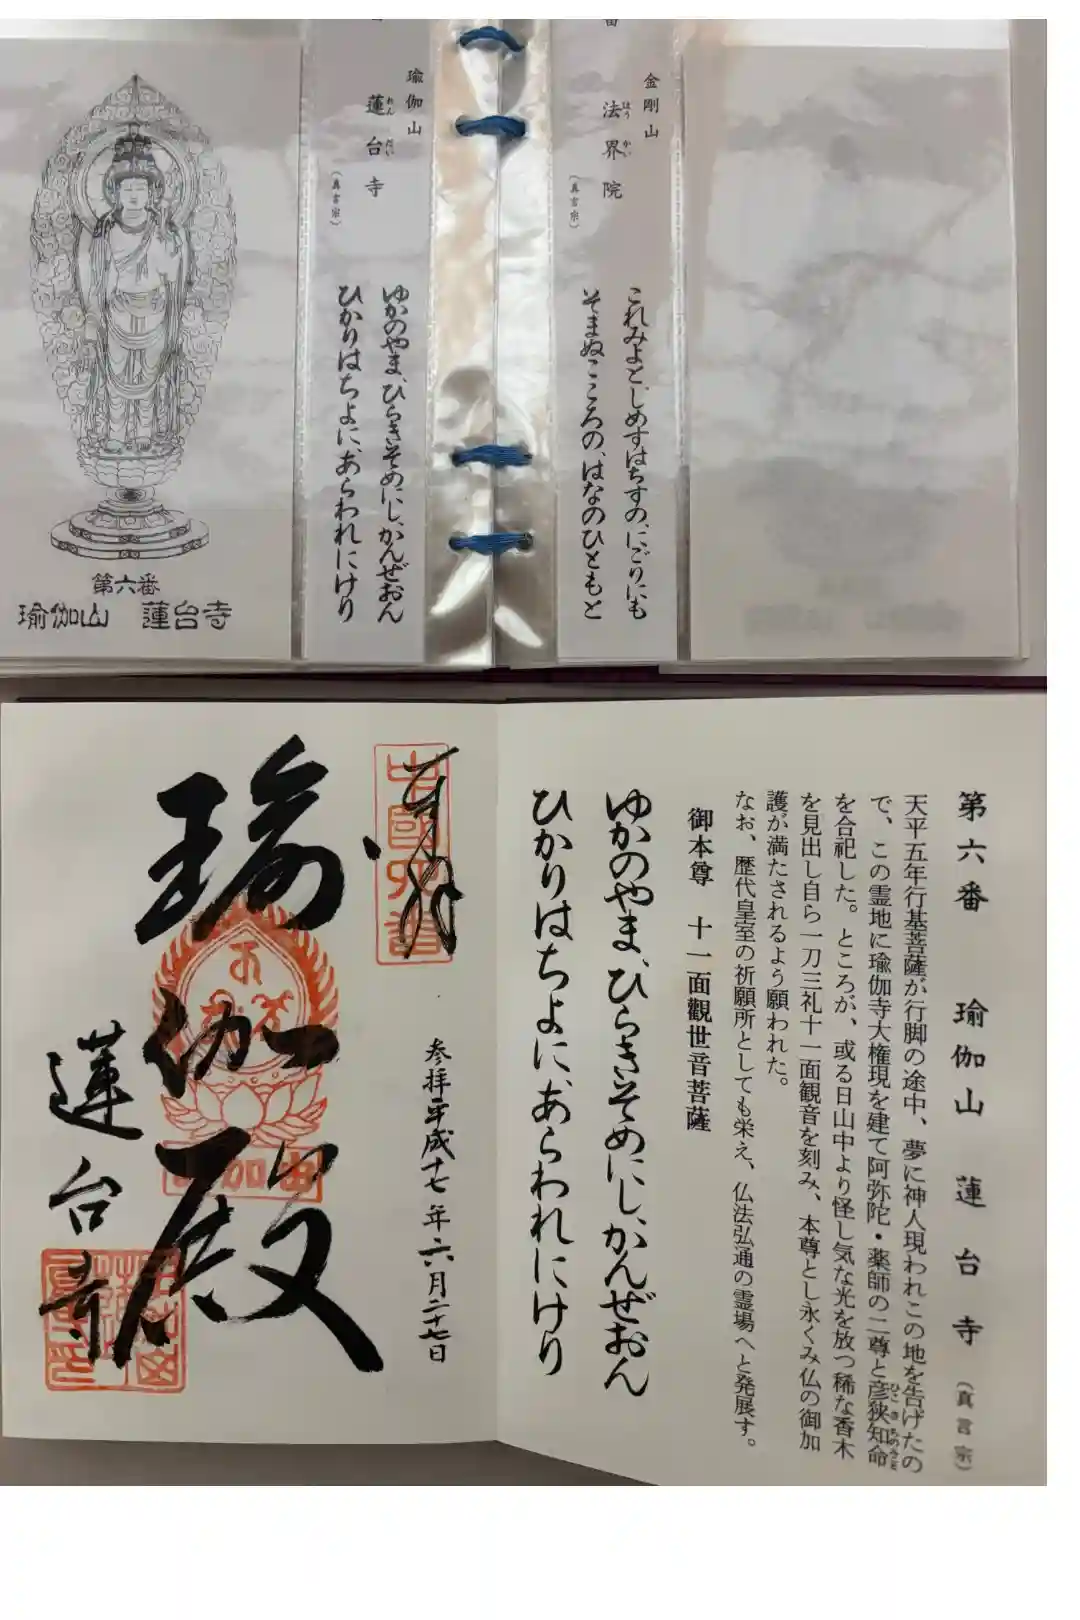 金剛山
法界院
はう かい
（真言宗）
これみよと、しめすはちすの、にごりにも
そまぬこころの、はなのひともと
瑜伽山
蓮台寺
れん だい
（真言宗）
ゆかのやま、ひらきそめにし、かんぜおん
ひかりはちよに、あらわれにけり
第六番
瑜伽山　蓮台寺
第六番　瑜伽山　蓮台寺（真言宗）
天平五年行基菩薩が行脚の途中、夢に神人現われこの地を告げたの
で、この霊地に瑜伽寺大権現を建て阿弥陀・薬師の二尊と彦狭知命
を合祀した。ところが、或る日山中より怪し気な光を放つ稀な香木
を見出し自ら一刀三礼十一面観音を刻み、本尊とし永くみ仏の御加
護が満たされるよう願われた。
なお、歴代皇室の祈願所としても栄え、仏法弘通の霊場へと発展す。
御本尊　十一面觀世音菩薩
ゆかのやま、ひらきそめにし、かんぜおん
ひかりはちよに、あらわれにけり
中國六番
参拝平成十七年六月二十七日
瑜伽殿
蓮台寺